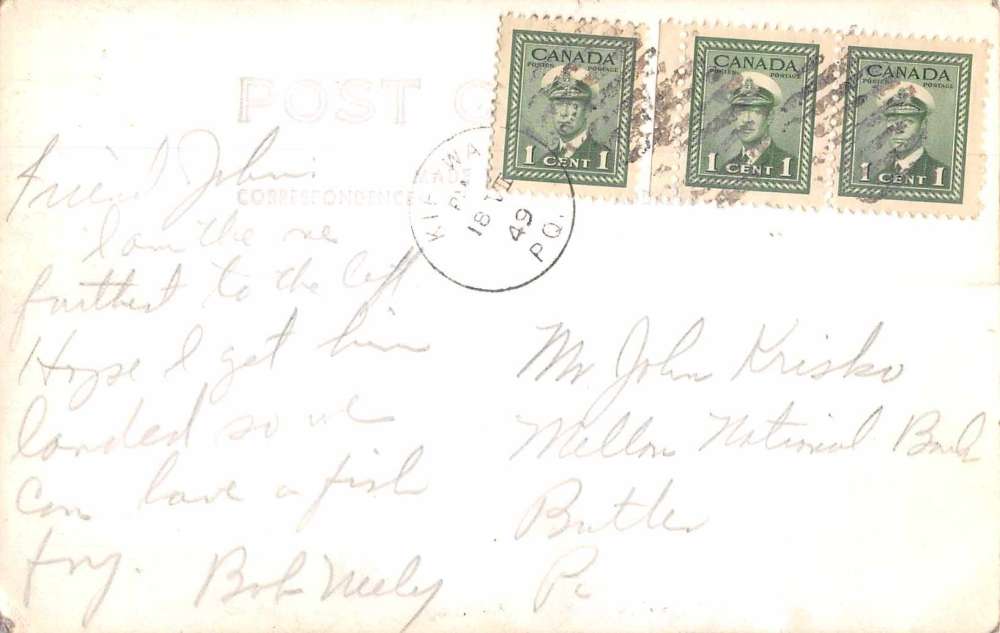 POST
CANADA
POSTES POSTAGE
1 CENT 1
CANADA
POSTES POSTAGE
1 CENT 1
CANADA
POSTES POSTAGE
1 CENT 1
PM
18
49
PQ.
MADE
CORRESPONDENCE
Friend John:
I am the one
farthest to the left
Hope I get him
landed so we
can have a fish
fry. Bob Neely
Mr John Krisko
Mellon National Bank
Butler
Pa